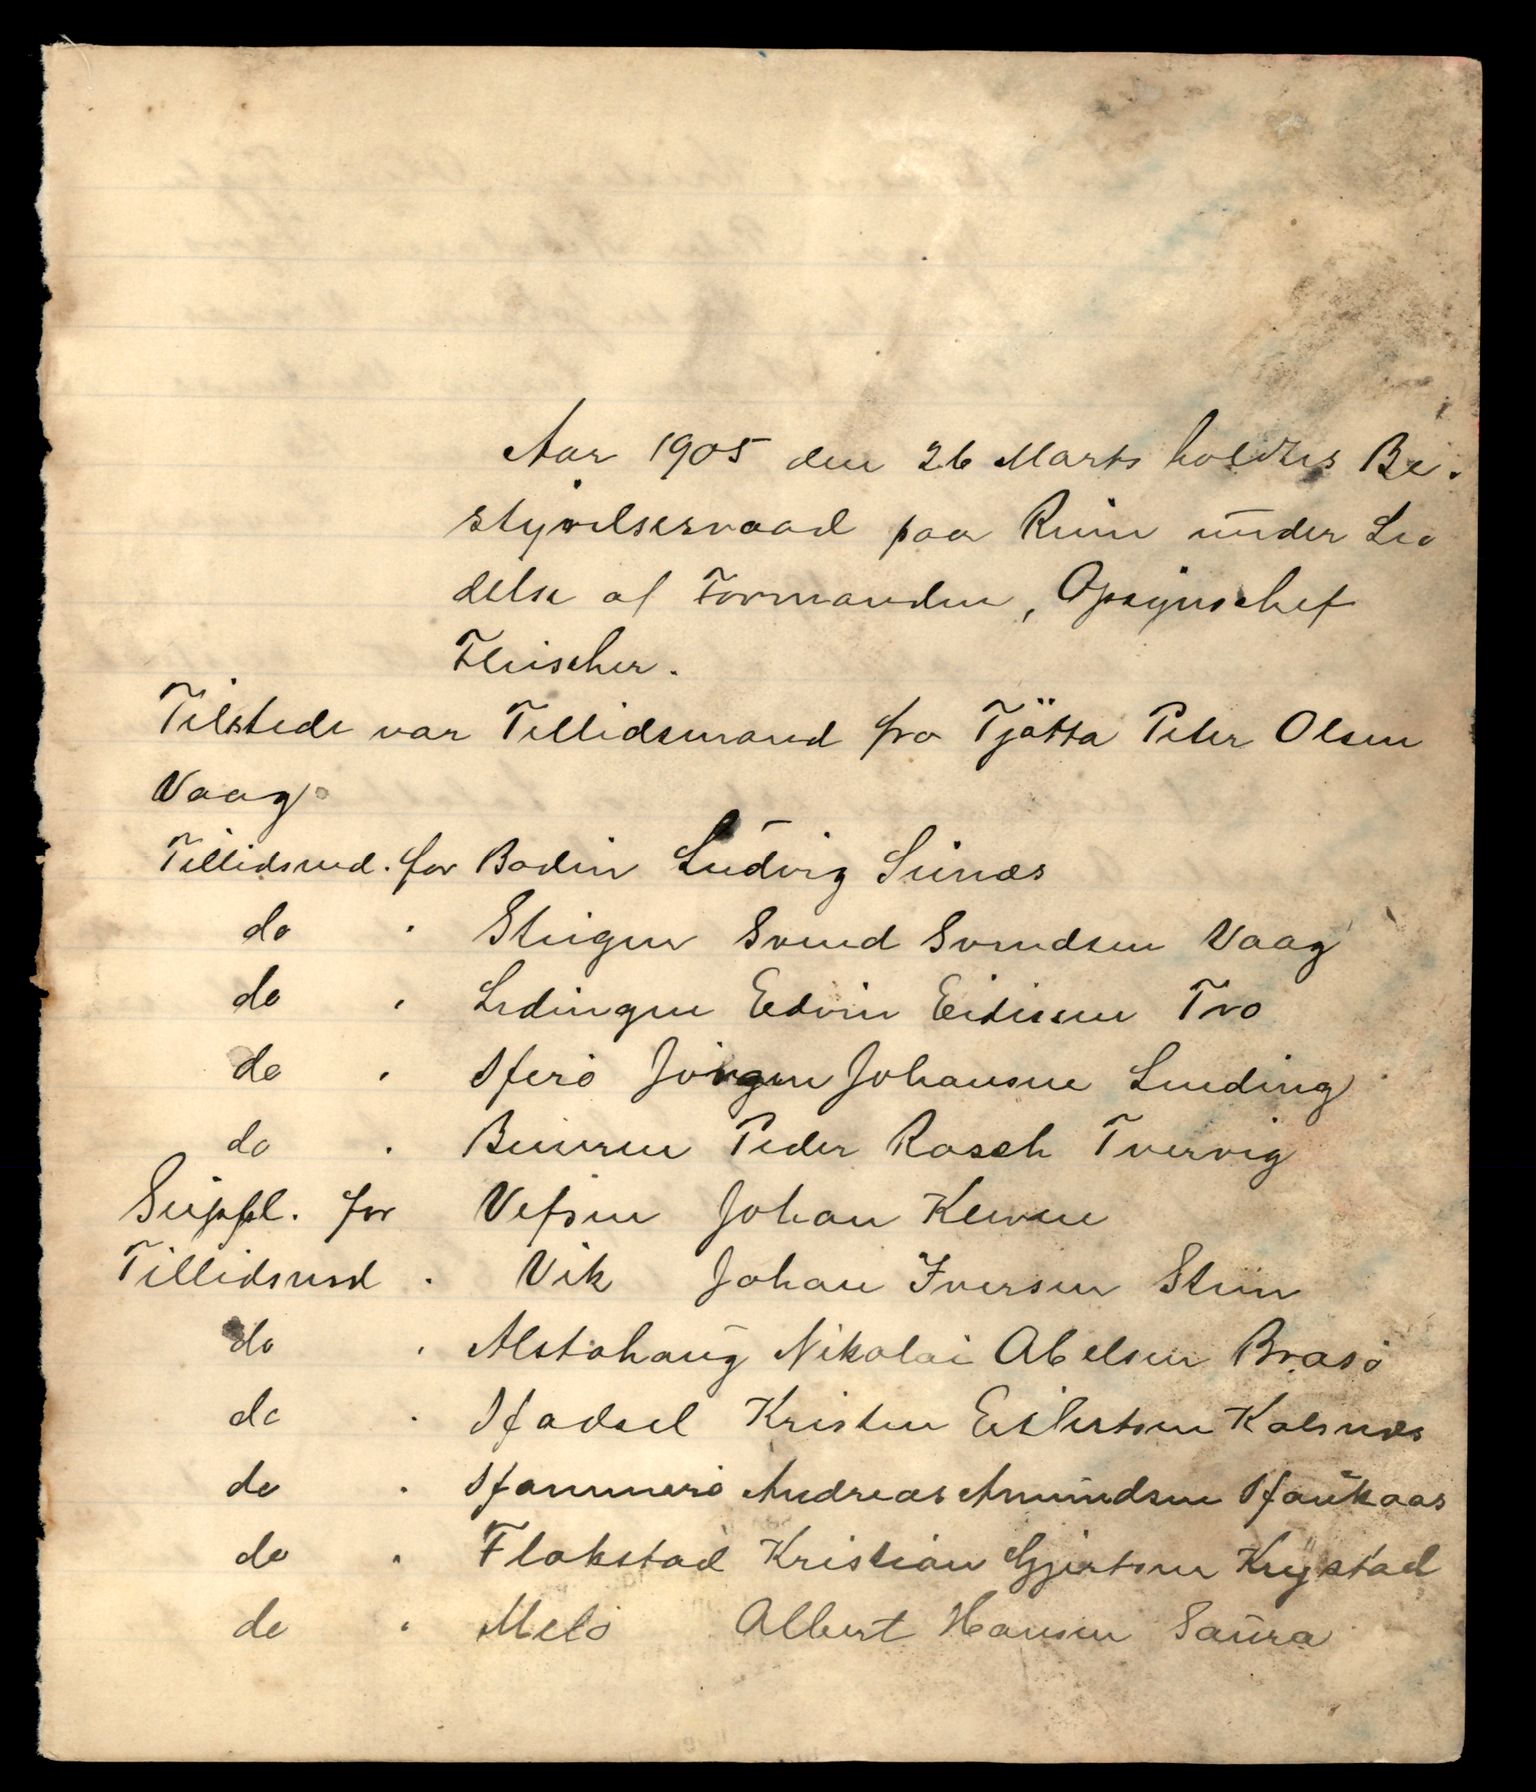 Aar 1905 den 26 Marts holdtes Be-
styrelsesraad paa Rein under Le
delse af Formanden, Opsynschef
Fleischer.
Tilstede var Tillidsmand fra Tjötta Peter Olsen
Vaag.
Tillidsmd. for Bodin Ludvig Seines
do " Steigen Svend Svendsen Vaag
do " Lødingen Edvin Edissen Tro
do " Herö Jörgen Johansen Sunding
do " Beieren Peder Rasch Tvervig
Suppl. for Vefsen Johan Kleven
Tillidsmd " Vik Johan Iversen Sten
do " Alstahaug Nikolai Abelsen Brasö
do " Hadsel Kristen Eilertsen Kalsnes
do " Hammerö Andreas Amundsen Haukaas
do " Flakstad Kristian Gjertsen Krystad
do " Melö Albert Hansen Saura